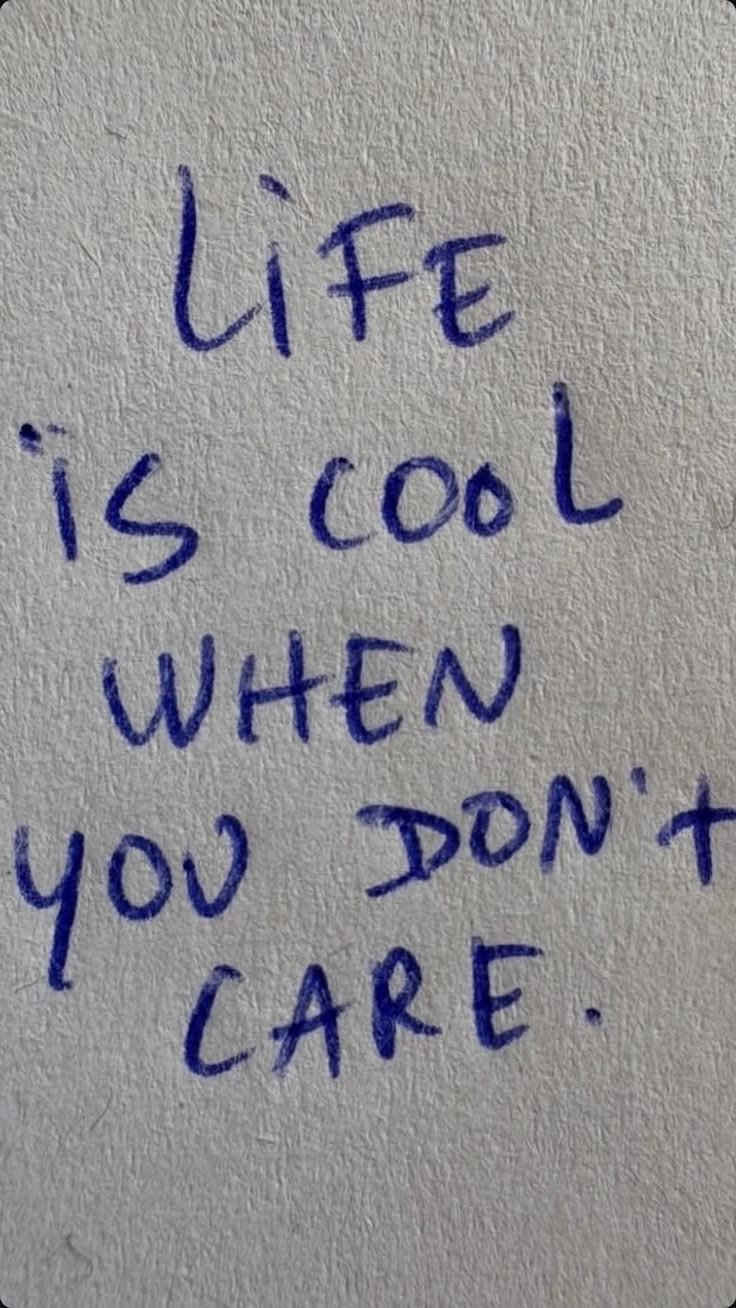 LiFE
iS COOL
WHEN
YOU DON't
CARE.